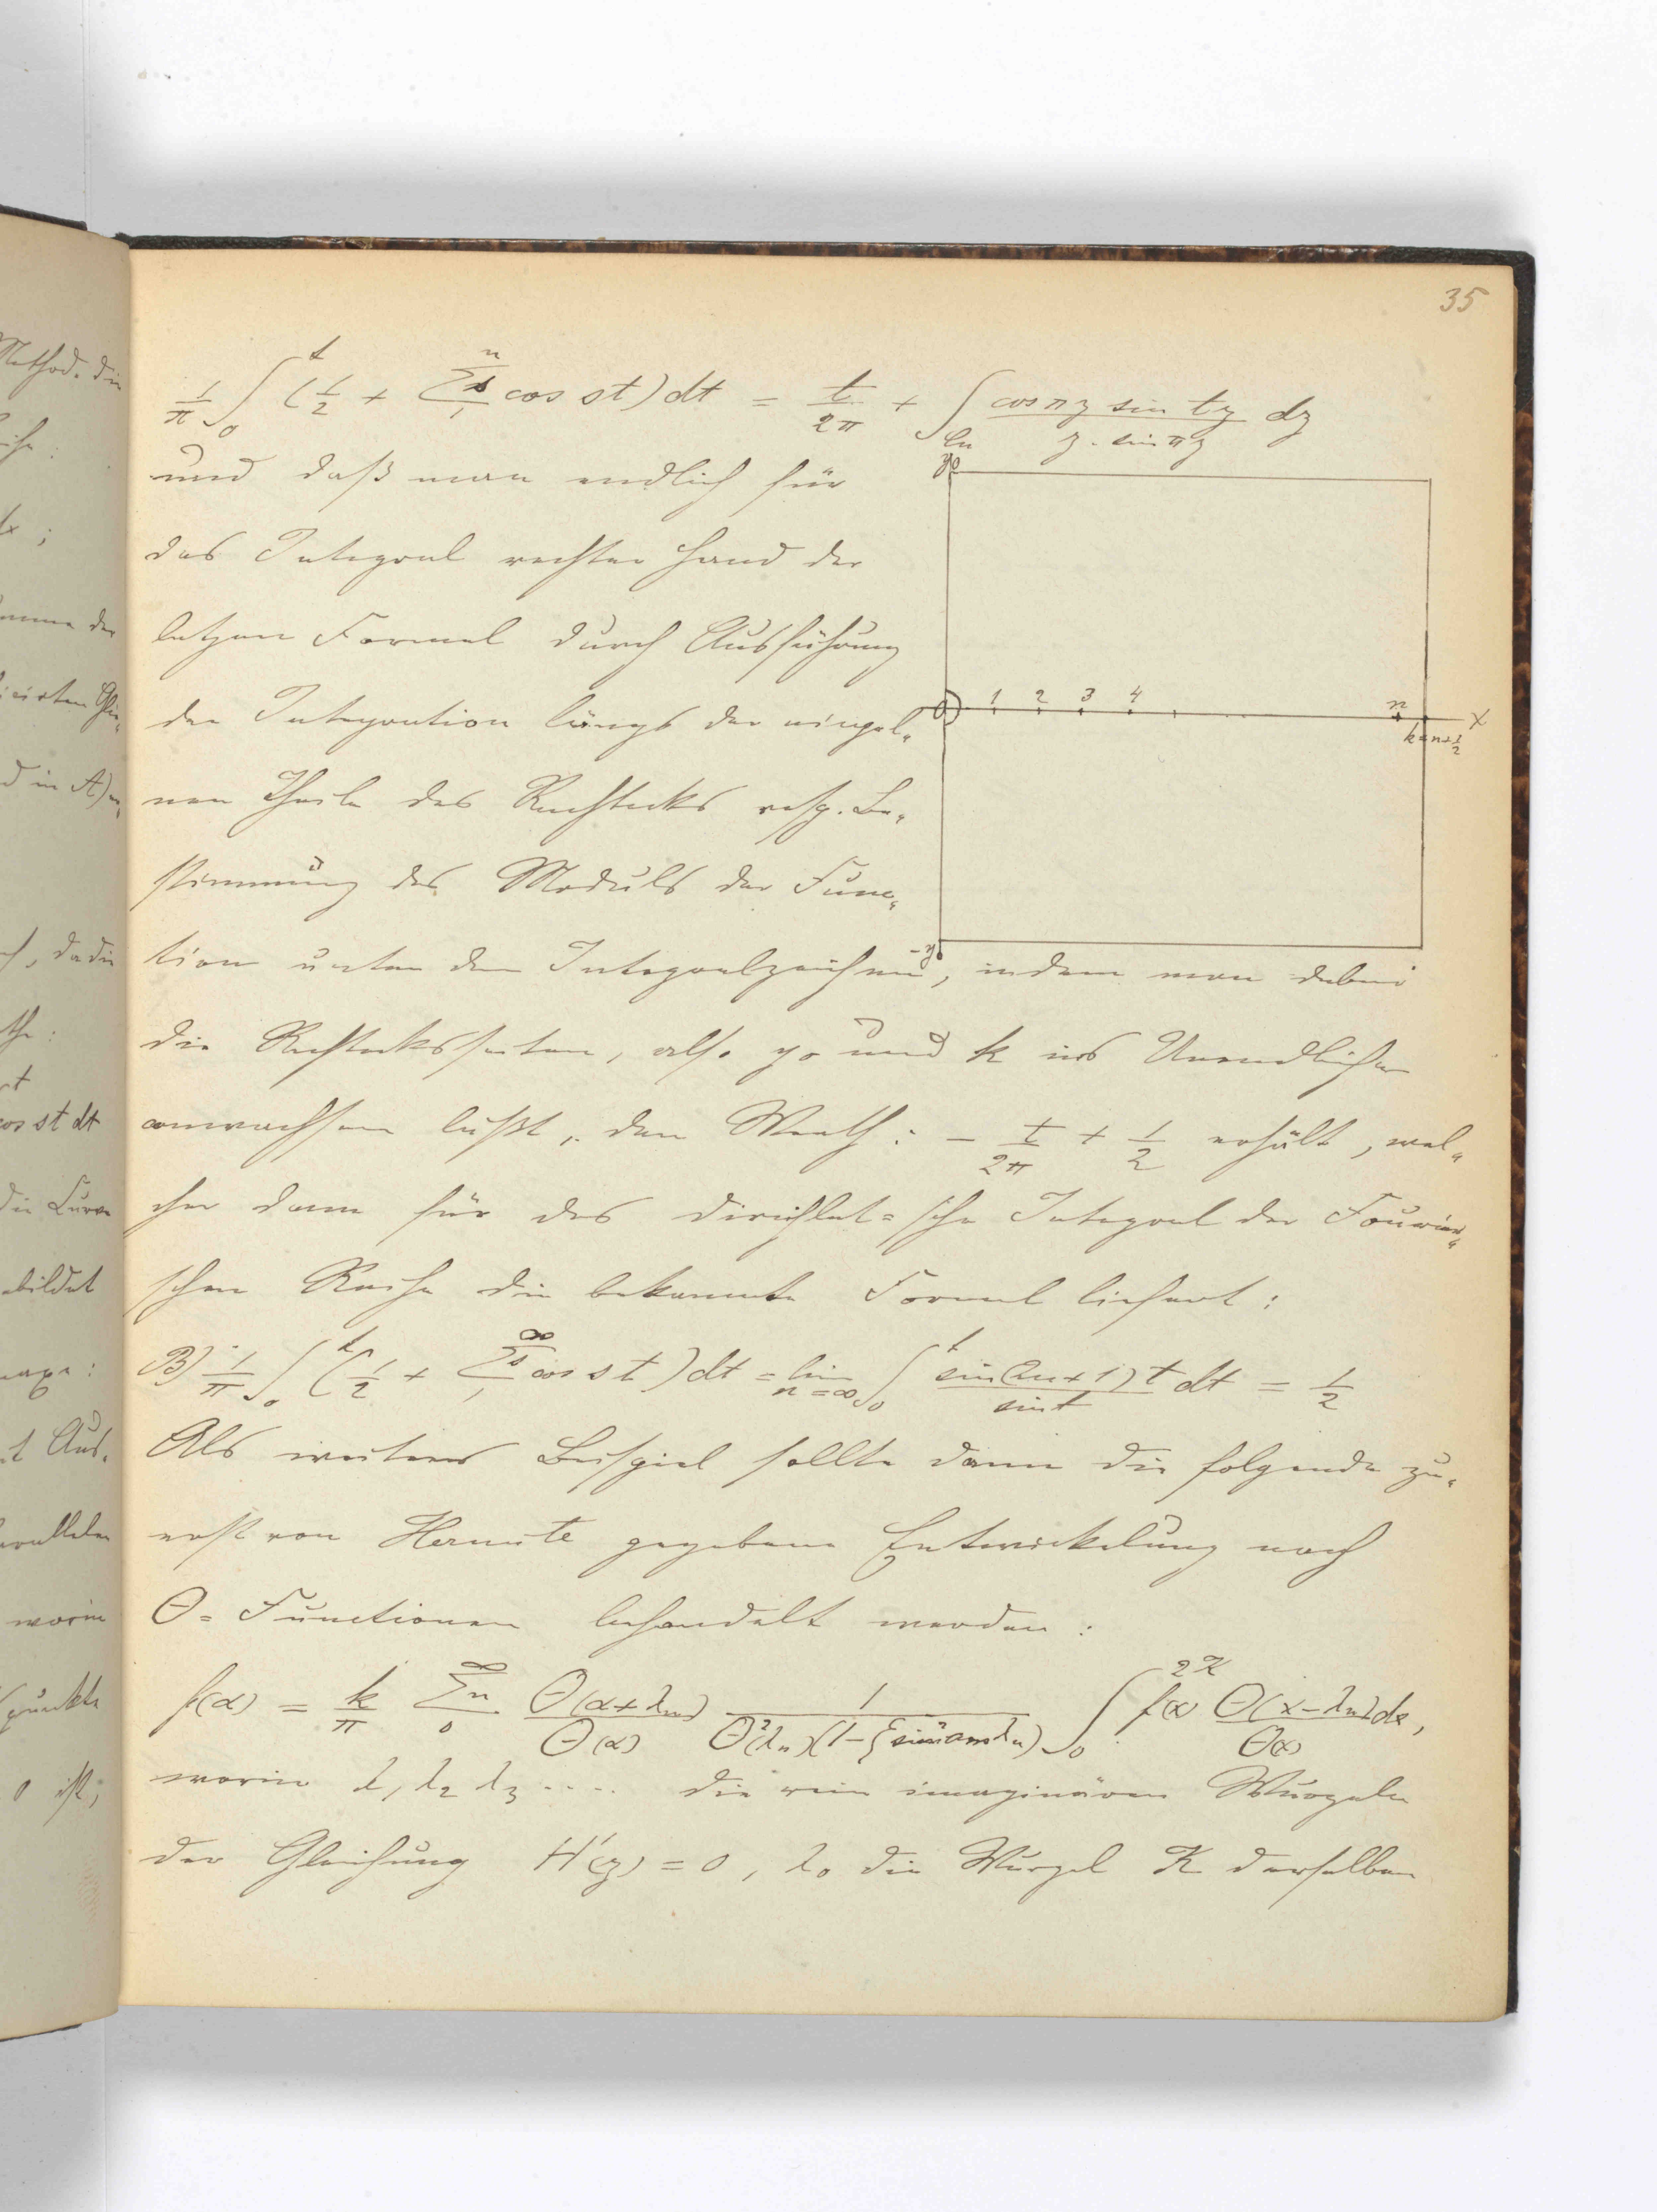 35
1/π ∫₀ᵗ (1/2 + Σₛ₌₁ⁿ cos st) dt = t/2π + ∫ cos πz sin tz / z · sin πz dz
und daß man endlich für
das Integral rechter Hand der
letzen Formel durch Ausführung
der Integration längs der einzel„
nen Theile des Rechtecks resp. Be„
stimmung des Moduls der Func„
tion unter dem Integralzeichen, indem man dabei
die Rechtecksseiten, also y₀ und k ins Unendliche
anwachsen läßt, den Werth: − t/2π + 1/2 erhält, wel„
cher dann für das dirichlet=sche Integral der Fourier„
schen Reihe die bekannte Formel liefert:
B) 1/π ∫₀ᵗ (1/2 + Σₛ₌₁^∞ cos st) dt = lim n=∞ ∫₀ᵗ sin(2n+1)t / sin t dt = 1/2
Als weiteres Beispiel sollte dann die folgende zu„
erst von Hermite gegebene Entwickelung nach
Θ= Functionen behandelt werden:
f(α) = k/π Σₙ₌₀^∞ Θ(α+λₙ)/Θ(α) 1/Θ²(λₙ)(1− sin² am λₙ) ∫₀^2K f(x) Θ(x−λₙ)dx/Θ(x),
worin λ₁ λ₂ λ₃ .... die rein imaginären Wurzeln
der Gleichung H'(z) = 0, λ₀ die Wurzel K derselben
y₀
0 1 2 3 4 n X
k=n+1/2
−y₀